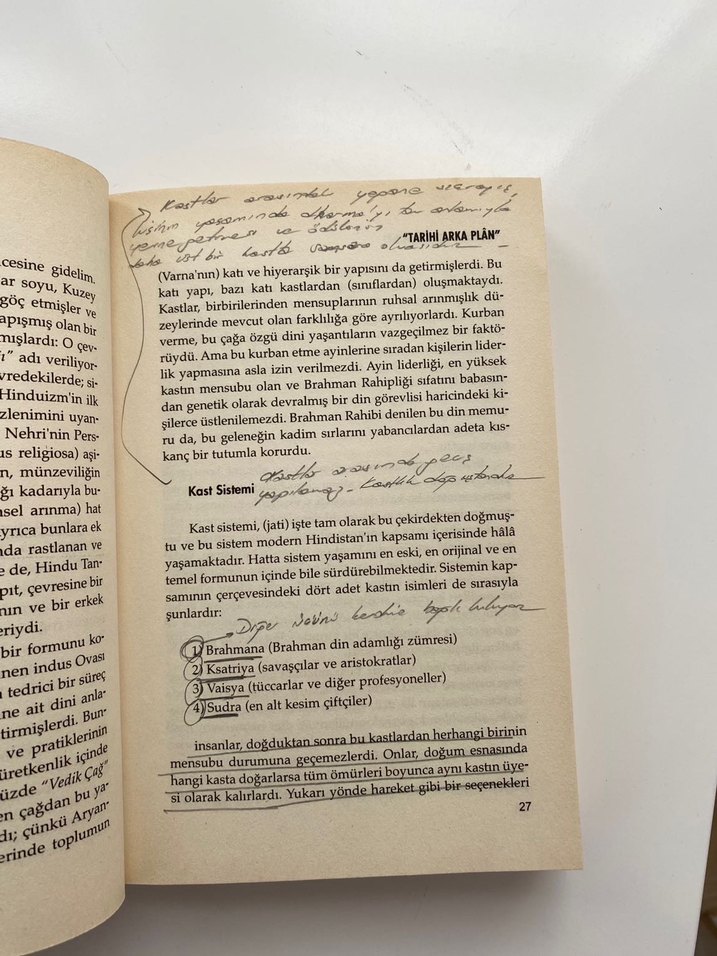 cesine gidelim.
ar soyu, Kuzey
göç etmişler ve
apışmış olan bir
mışlardı: O çev-
adı veriliyor-
vredekilerde; si-
Hinduizm'in ilk
zlenimini uyan-
Nehri'nin Pers-
us religiosa) aşi-
n, münzeviliğin
ğı kadarıyla bu-
nsel arınma) hat
yrıca bunlara ek
nda rastlanan ve
e de, Hindu Tan-
pıt, çevresine bir
nın ve bir erkek
eriydi.
bir formunu ko-
nen indus Ovası
a tedrici bir süreç
ne ait dini anla-
tirmişlerdi. Bun-
ve pratiklerinin
üretkenlik içinde
üzde "Vedik Çağ"
en çağdan bu ya-
dı; çünkü Aryan-
erinde toplumun
Kastlar arasındaki
yaşamında dharma'yı tam anlamıyla
yerine getirmesi ve ödülünün
daha üst bir kastta
"TARİHİ ARKA PLÂN"
(Varna'nın) katı ve hiyerarşik bir yapısını da getirmişlerdi. Bu
katı yapı, bazı katı kastlardan (sınıflardan) oluşmaktaydı.
Kastlar, birbirilerinden mensuplarının ruhsal arınmışlık dü-
zeylerinde mevcut olan farklılığa göre ayrılıyorlardı. Kurban
verme, bu çağa özgü dini yaşantıların vazgeçilmez bir faktö-
rüydü. Ama bu kurban etme ayinlerine sıradan kişilerin lider-
lik yapmasına asla izin verilmezdi. Ayin liderliği, en yüksek
kastın mensubu olan ve Brahman Rahipliği sıfatını babasın-
dan genetik olarak devralmış bir din görevlisi haricindeki ki-
şilerce üstlenilemezdi. Brahman Rahibi denilen bu din memu-
ru da, bu geleneğin kadim sırlarını yabancılardan adeta kıs-
kanç bir tutumla korurdu.
Kastlar arasında geçiş
Kast Sistemi yapılamaz - Kastlık doğuştandır
Kast sistemi, (jati) işte tam olarak bu çekirdekten doğmuş-
tu ve bu sistem modern Hindistan'ın kapsamı içerisinde hâlâ
yaşamaktadır. Hatta sistem yaşamını en eski, en orijinal ve en
temel formunun içinde bile sürdürebilmektedir. Sistemin kap-
samının çerçevesindeki dört adet kastın isimleri de sırasıyla
şunlardır:
Diğer üçünü kendine bağlı tutuyor
1) Brahmana (Brahman din adamlığı zümresi)
2) Ksatriya (savaşçılar ve aristokratlar)
3) Vaisya (tüccarlar ve diğer profesyoneller)
4) Sudra (en alt kesim çiftçiler)
insanlar, doğduktan sonra bu kastlardan herhangi birinin
mensubu durumuna geçemezlerdi. Onlar, doğum esnasında
hangi kasta doğarlarsa tüm ömürleri boyunca aynı kastın üye-
si olarak kalırlardı. Yukarı yönde hareket gibi bir seçenekleri
27